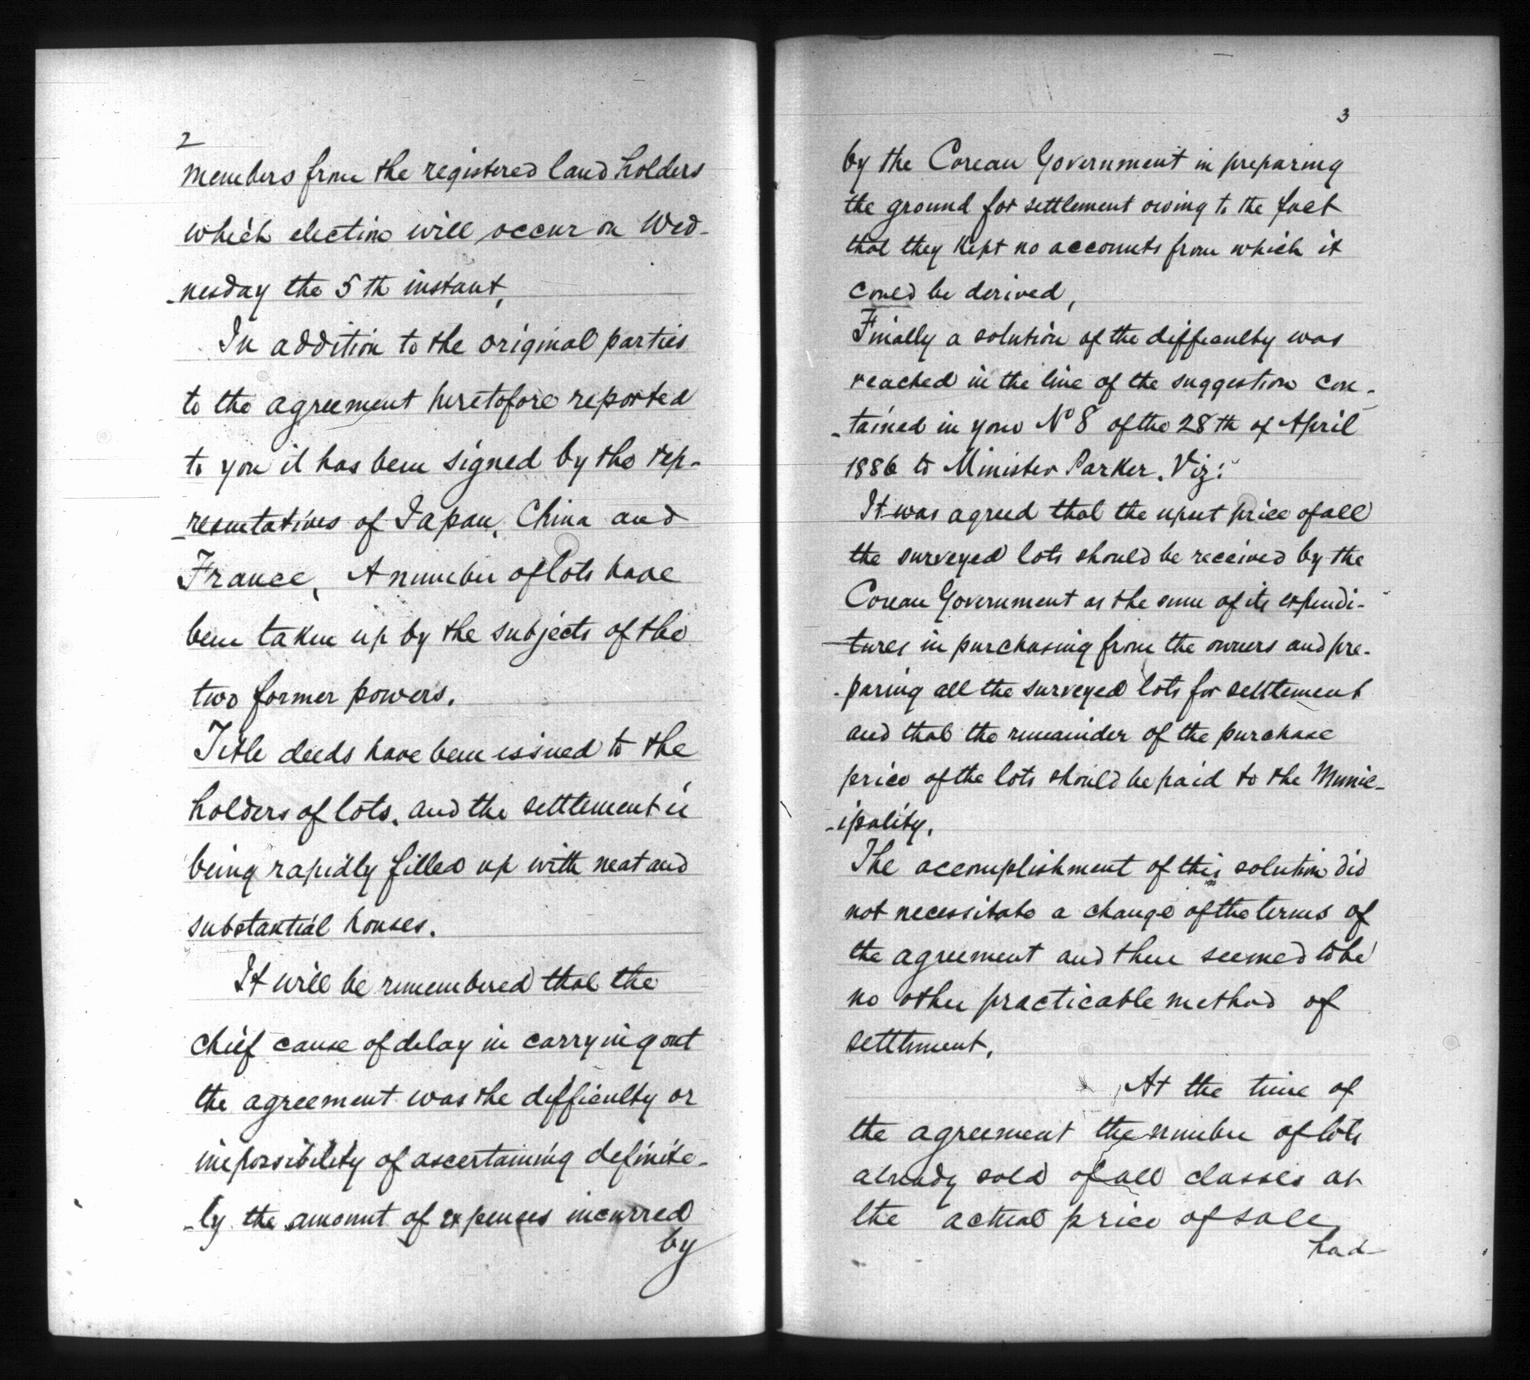 2
members from the registered land holders
which election will occur on Wed-
-nesday the 5th instant,
In addition to the original parties
to the agreement heretofore reported
to you it has been signed by the rep-
-resentatives of Japan, China and
France, A number of lots have
been taken up by the subjects of the
two former powers.
Title deeds have been issued to the
holders of lots, and the settlement is
being rapidly filled up with neat and
substantial houses.
It will be remembered that the
chief cause of delay in carrying out
the agreement was the difficulty or
impossibility of ascertaining definite-
-ly the amount of expenses incurred
by
3
by the Corean Government in preparing
the ground for settlement owing to the fact
that they kept no accounts from which it
could be derived,
Finally a solution of the difficulty was
reached in the line of the suggestion con-
-tained in your No 8 of the 28th of April
1886 to Minister Parker. Viz:
It was agreed that the upset price of all
the surveyed lots should be received by the
Corean Government as the sum of its expendi-
-tures in purchasing from the owners and pre-
-paring all the surveyed lots for settlement
and that the remainder of the purchase
price of the lots should be paid to the Munic-
-ipality.
The accomplishment of this solution did
not necessitate a change of the terms of
the agreement and there seemed to be
no other practicable method of
settlment.
At the time of
the agreement the number of lots
already sold of all classes at
the actual price of sale
had